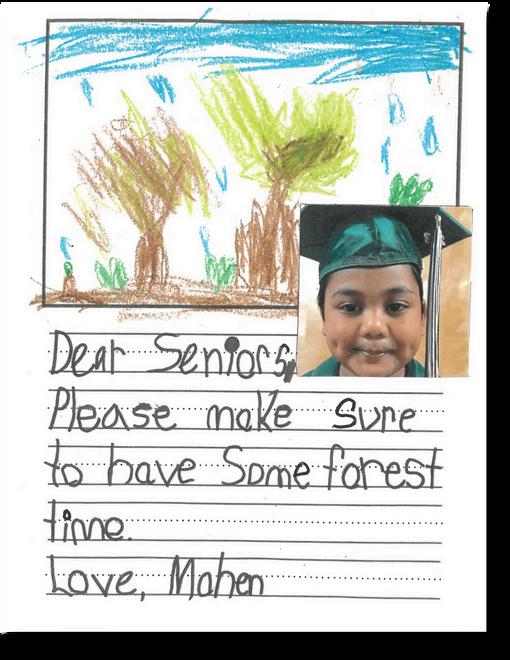 Dear Seniors,
Please make sure
to have Some forest
time.
Love, Mahen